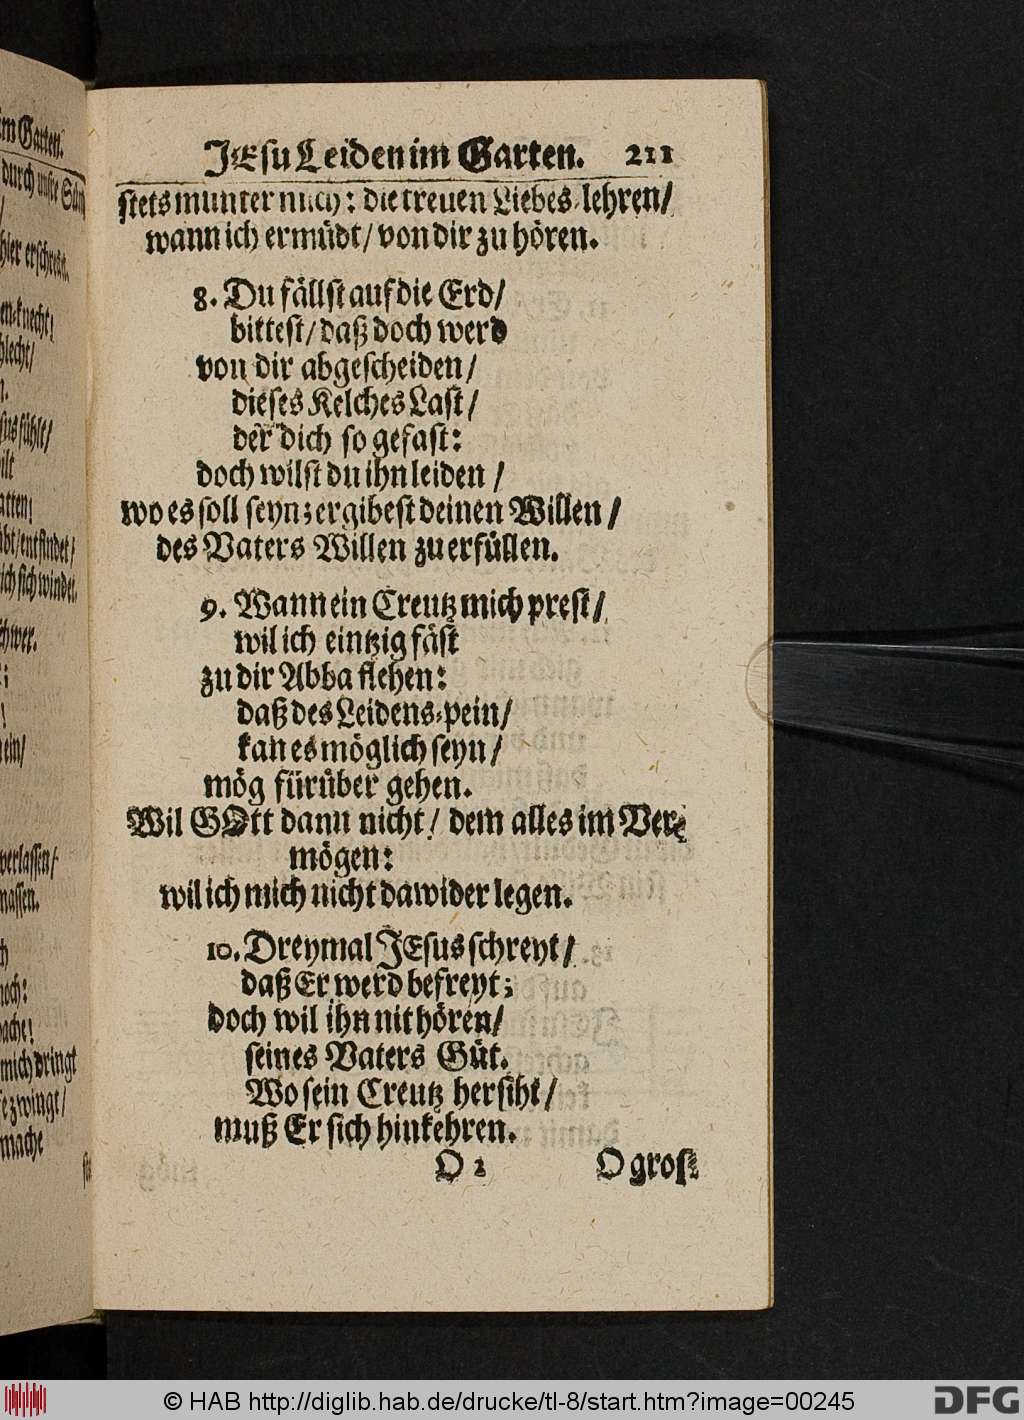 im Garten.
durch unsre Sün
hier erschrocken.
en-knecht!
hlecht/
n.
sus fühlt/
ilt
atten!
übt/entfindet/
ich sich windet.
chwer.
verlassen/
massen.
noch:
ache!
mich dringt
fe zwingt/
mache
JEsu Leiden im Garten. 211
stets munter mich: die treuen Liebes-lehren/
wann ich ermüdt/ von dir zu hören.
8. Du fällst auf die Erd/
bittest/ daß doch werd
von dir abgescheiden/
dieses Kelches Last/
der dich so gefast:
doch wilst du ihn leiden/
wo es soll seyn; ergibest deinen Willen/
des Vaters Willen zu erfüllen.
9. Wann ein Creutz mich prest/
wil ich eintzig fäst
zu dir Abba flehen:
daß des Leidens-pein/
kan es möglich seyn/
mög fürüber gehen.
Wil GOtt dann nicht/ dem alles im Ver-
mögen:
wil ich mich nicht dawider legen.
10. Dreymal JEsus schreyt/
daß Er werd befreyt;
doch wil ihn nit hören/
seines Vaters Güt.
Wo sein Creutz hersiht/
muß Er sich hinkehren.
O 2 O gros-
© HAB http://diglib.hab.de/drucke/tl-8/start.htm?image=00245
DFG